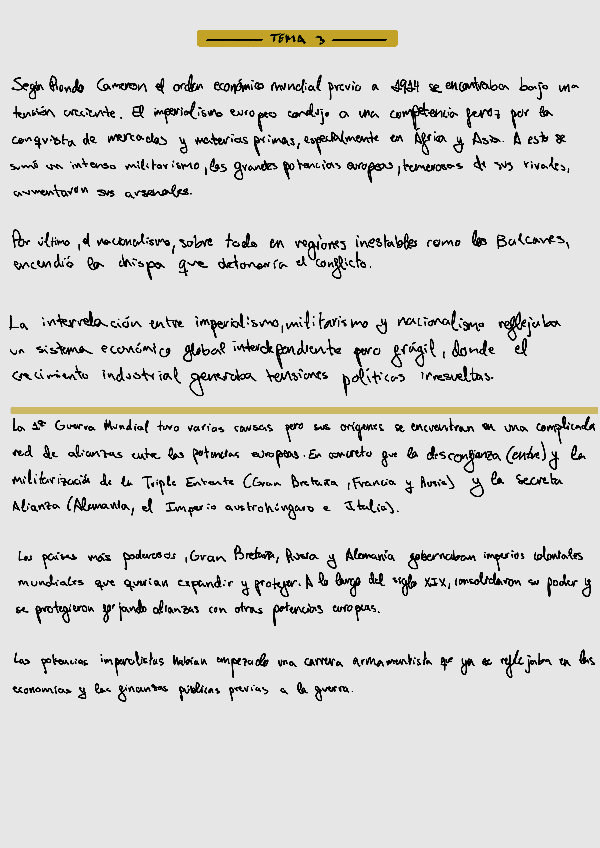 TEMA 3
Según Rondo Cameron el orden económico mundial previo a 1914 se encontraba bajo una
tensión creciente. El imperialismo europeo condujo a una competencia feroz por la
conquista de mercados y materias primas, especialmente en África y Asia. A esto se
sumó un intenso militarismo, las grandes potencias europeas, temerosas de sus rivales,
aumentaron sus arsenales.
Por último, el nacionalismo, sobre todo en regiones inestables como los Balcanes,
encendió la chispa que detonaría el conflicto.
La interrelación entre imperialismo, militarismo y nacionalismo reflejaba
un sistema económico global interdependiente pero frágil, donde el
crecimiento industrial generaba tensiones políticas irresueltas.
La 1ª Guerra Mundial tuvo varias causas pero sus orígenes se encuentran en una complicada
red de alianzas entre las potencias europeas. En concreto que la desconfianza (entre) y la
militarización de la Triple Entente (Gran Bretaña, Francia y Rusia) y la secreta
Alianza (Alemania, el Imperio austrohúngaro e Italia).
Los países más poderosos, Gran Bretaña, Rusia y Alemania gobernaban imperios coloniales
mundiales que querían expandir y proteger. A lo largo del siglo XIX, consolidaron su poder y
se protegieron forjando alianzas con otras potencias europeas.
Las potencias imperialistas habían empezado una carrera armamentista que ya se reflejaba en las
economías y las finanzas públicas previas a la guerra.